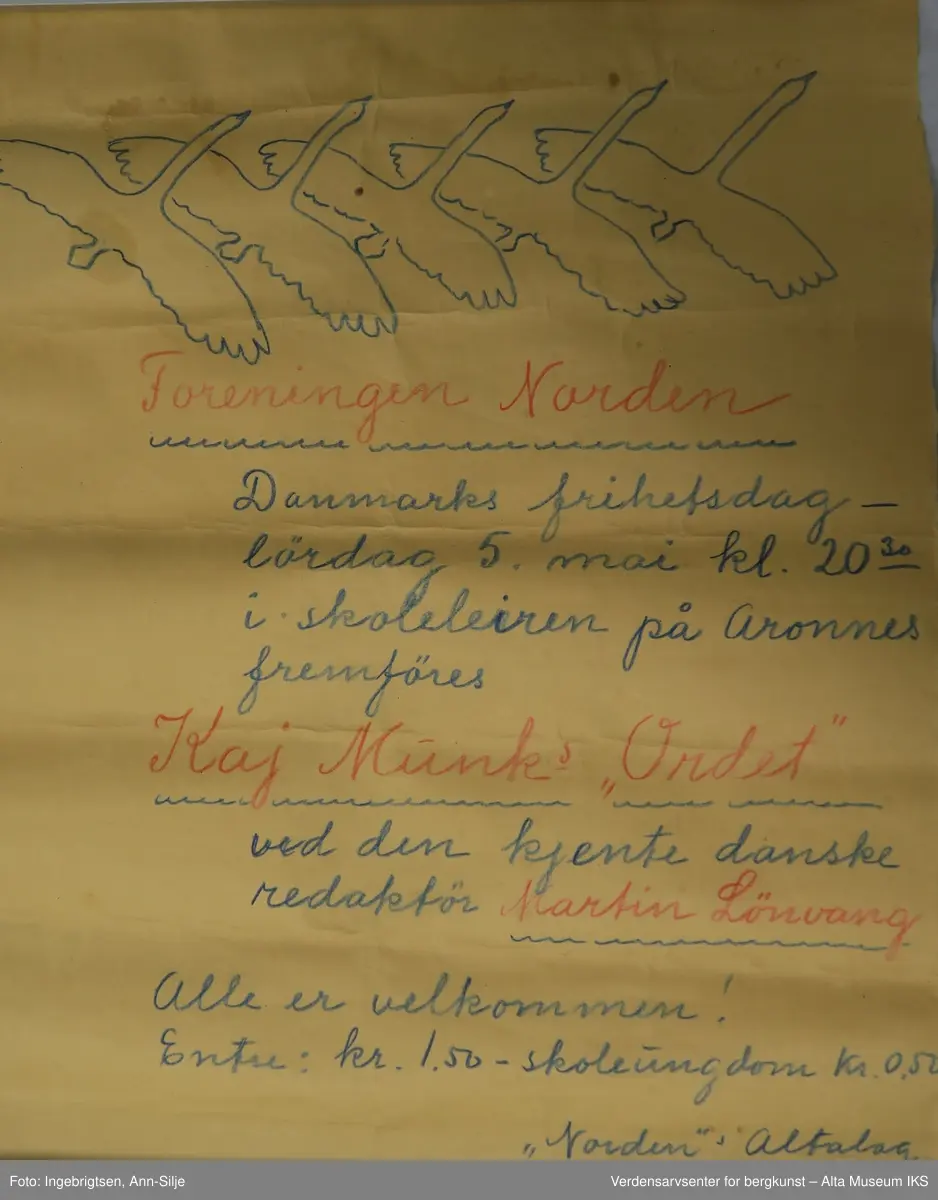 Foreningen Norden
Danmarks frihetsdag –
lördag 5. mai kl. 20 30
i skoleleiren på Aronnes
fremföres
Kaj Munks „Ordet"
ved den kjente danske
redaktör Martin Lönvang
Alle er velkommen!
Entre: kr. 1.50 – skoleungdom Kr. 0,50
„Norden"s Altalag
Foto: Ingebrigtsen, Ann-Silje
Verdensarvsenter for bergkunst – Alta Museum IKS